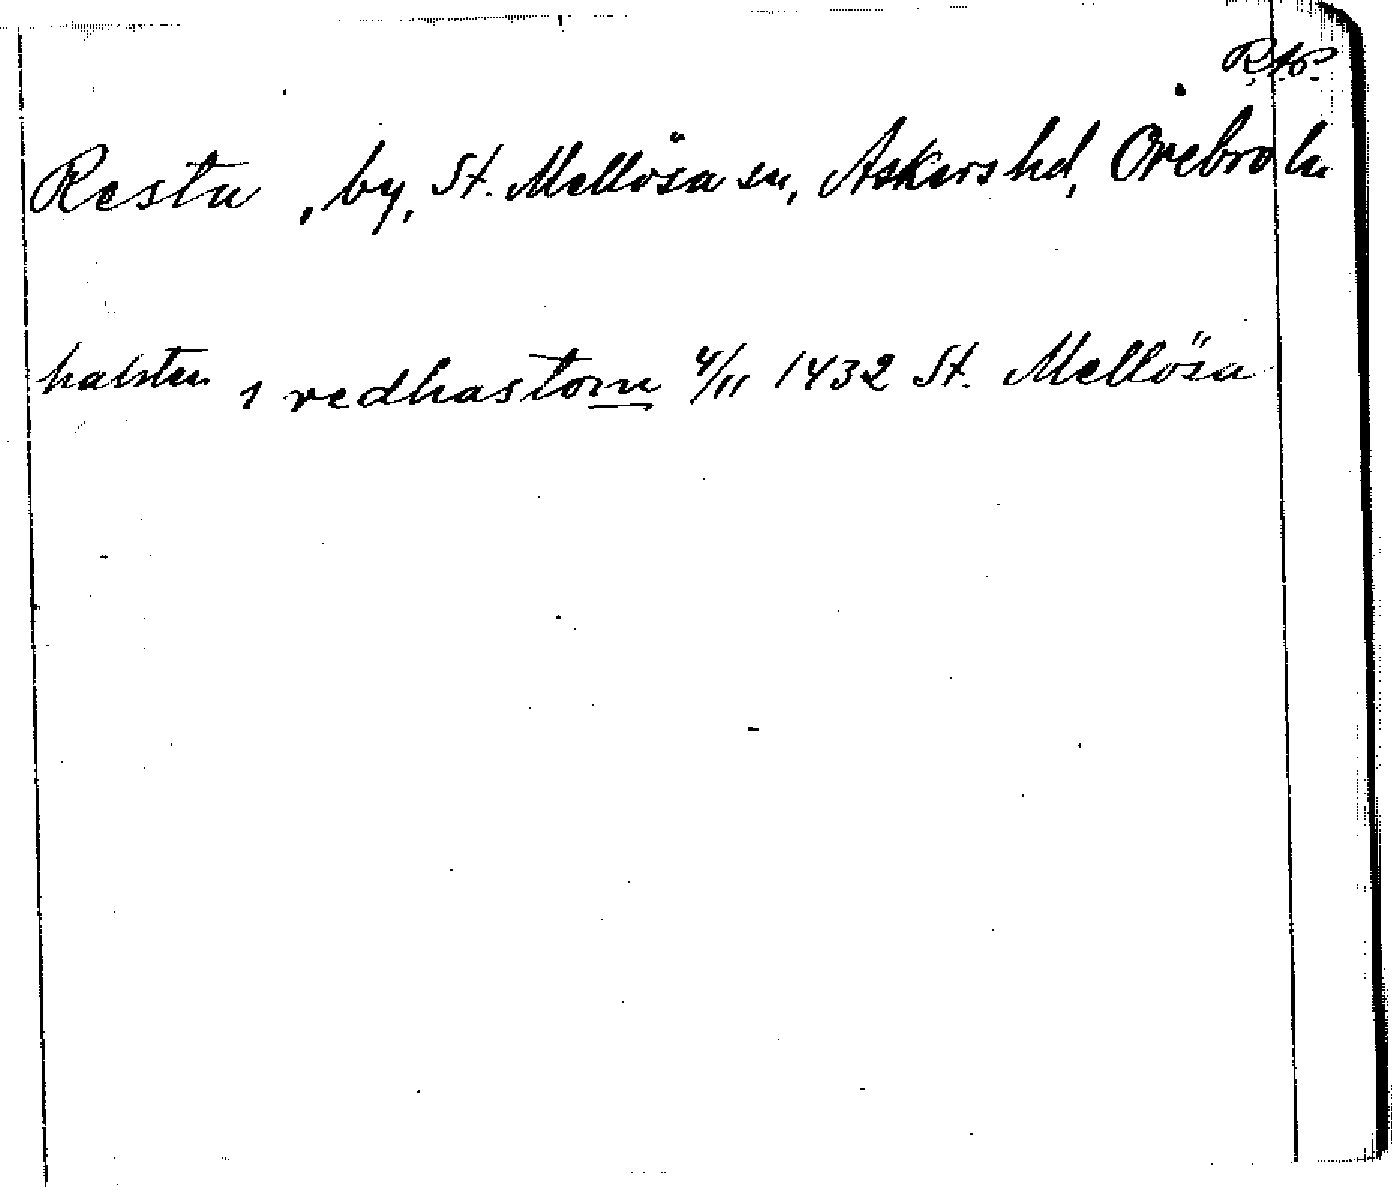 RAP.
Resta, by, St. Mellösa sn, Askers hd, Örebro ln
halsten i redhastom 4/11 1432 St. Mellösa